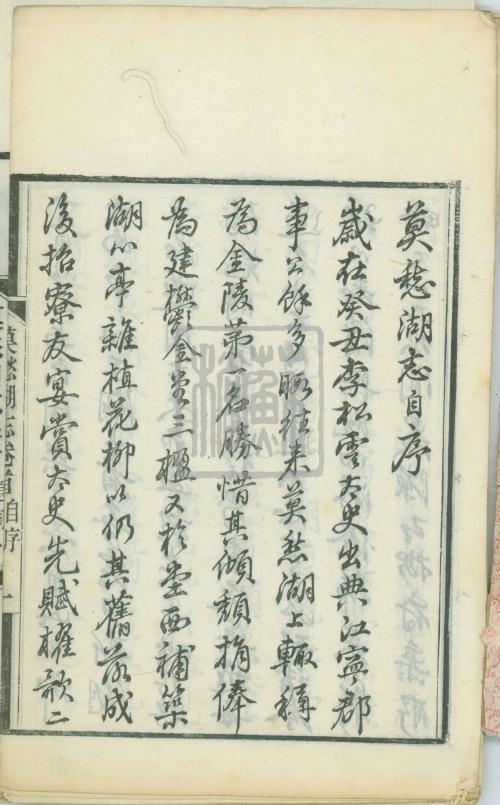 莫愁湖志自序
歲在癸丑李松雲太史出典江寧郡
事公餘多暇往来莫愁湖上輙稱
為金陵苐一名勝惜其傾頽捐俸
為建欝金堂三楹又於堂西補築
湖心亭雜植花柳以仍其舊落成
後招寮友宴賞太史先賦櫂歌二
莫愁湖志卷首自序
一